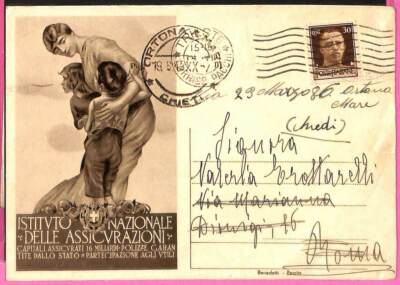 ISTITVTO NAZIONALE
DELLE ASSICVRAZIONI
CAPITALI ASSICVRATI 16 MILIARDI · POLIZZE GARAN
TITE DALLO STATO · PARTECIPAZIONE AGLI VTILI
ORTONA
CHIETI
30
29 Marzo Ortona
Mare
Signora
Valeria
Via Marianna
Dionigi, 16
Roma